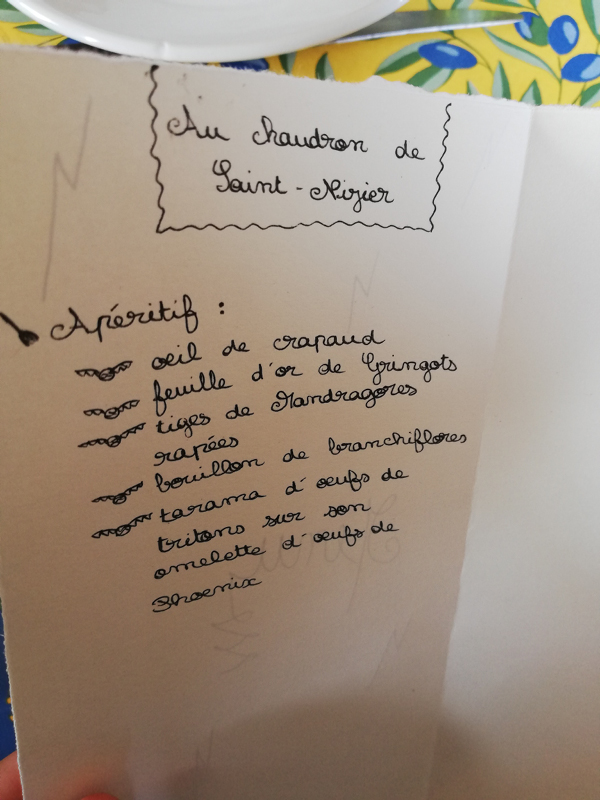 Au chaudron de
Saint-Nizier
Apéritif :
oeil de crapaud
feuille d'or de Gringots
tiges de Mandragores
rapées
bouillon de branchiflores
tarama d'oeufs de
tritons sur son
omelette d'oeufs de
Phoenix